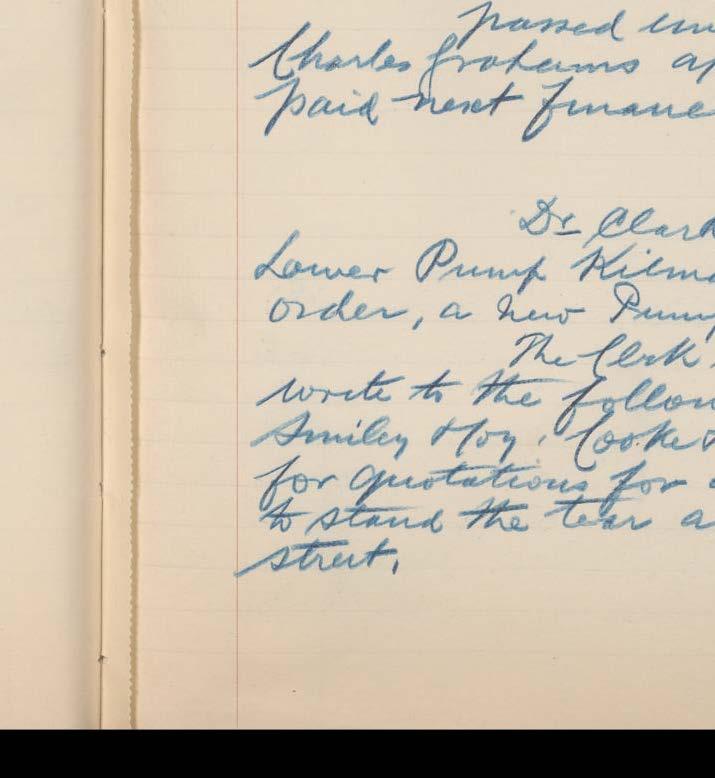 passed
Charles Grahams
paid next finance
Dr Clark
Lower Pump
order, a new Pump
The Clerk
write to the
Smiley
for quotations for
to stand the tear a
street.